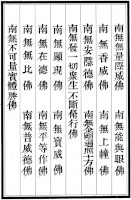 南無無量際威佛　南無無能與眼佛
南無香威佛　南無上幢佛
南無安隱德佛　南無念顧過照方佛
南無發一切衆生不斷脩行佛
南無願現佛　南無寶威佛
南無在德佛　南無平等作佛
南無無比佛　南無普威德佛
南無不可思實體勝佛